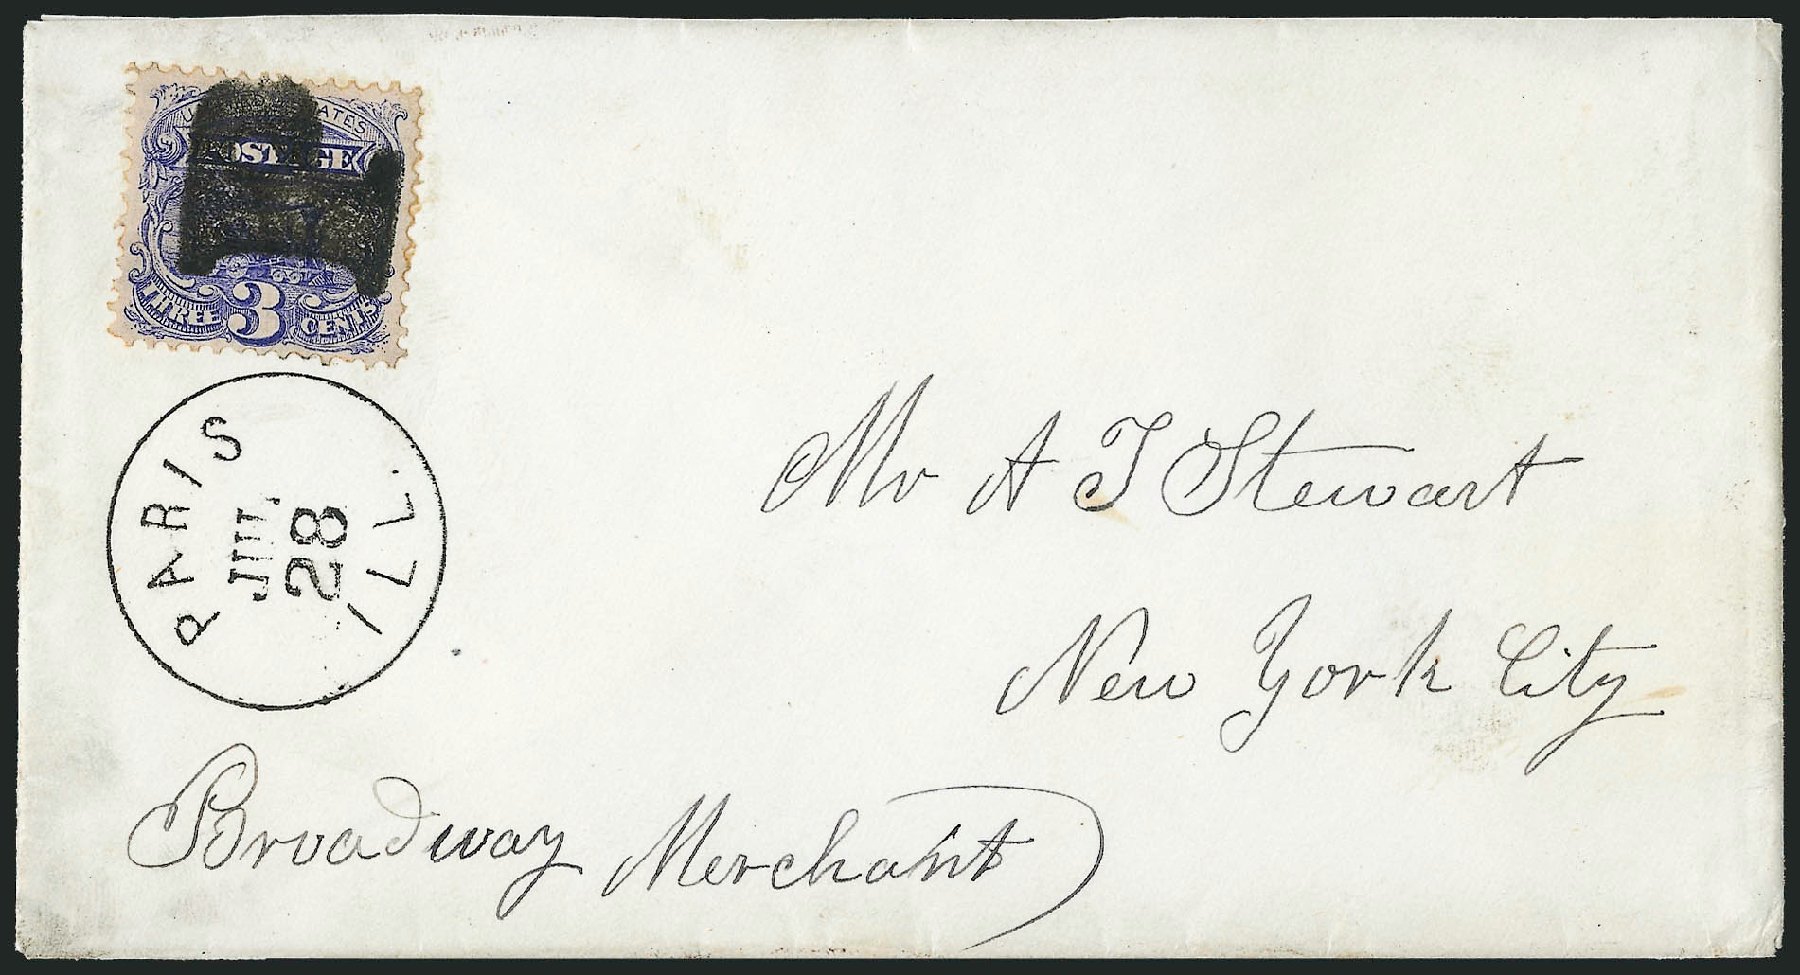 UNITED STATES
POSTAGE
THREE 3 CENTS
PARIS ILL.
JUL.
28
Mr A T Stewart
New York City
Broadway Merchant